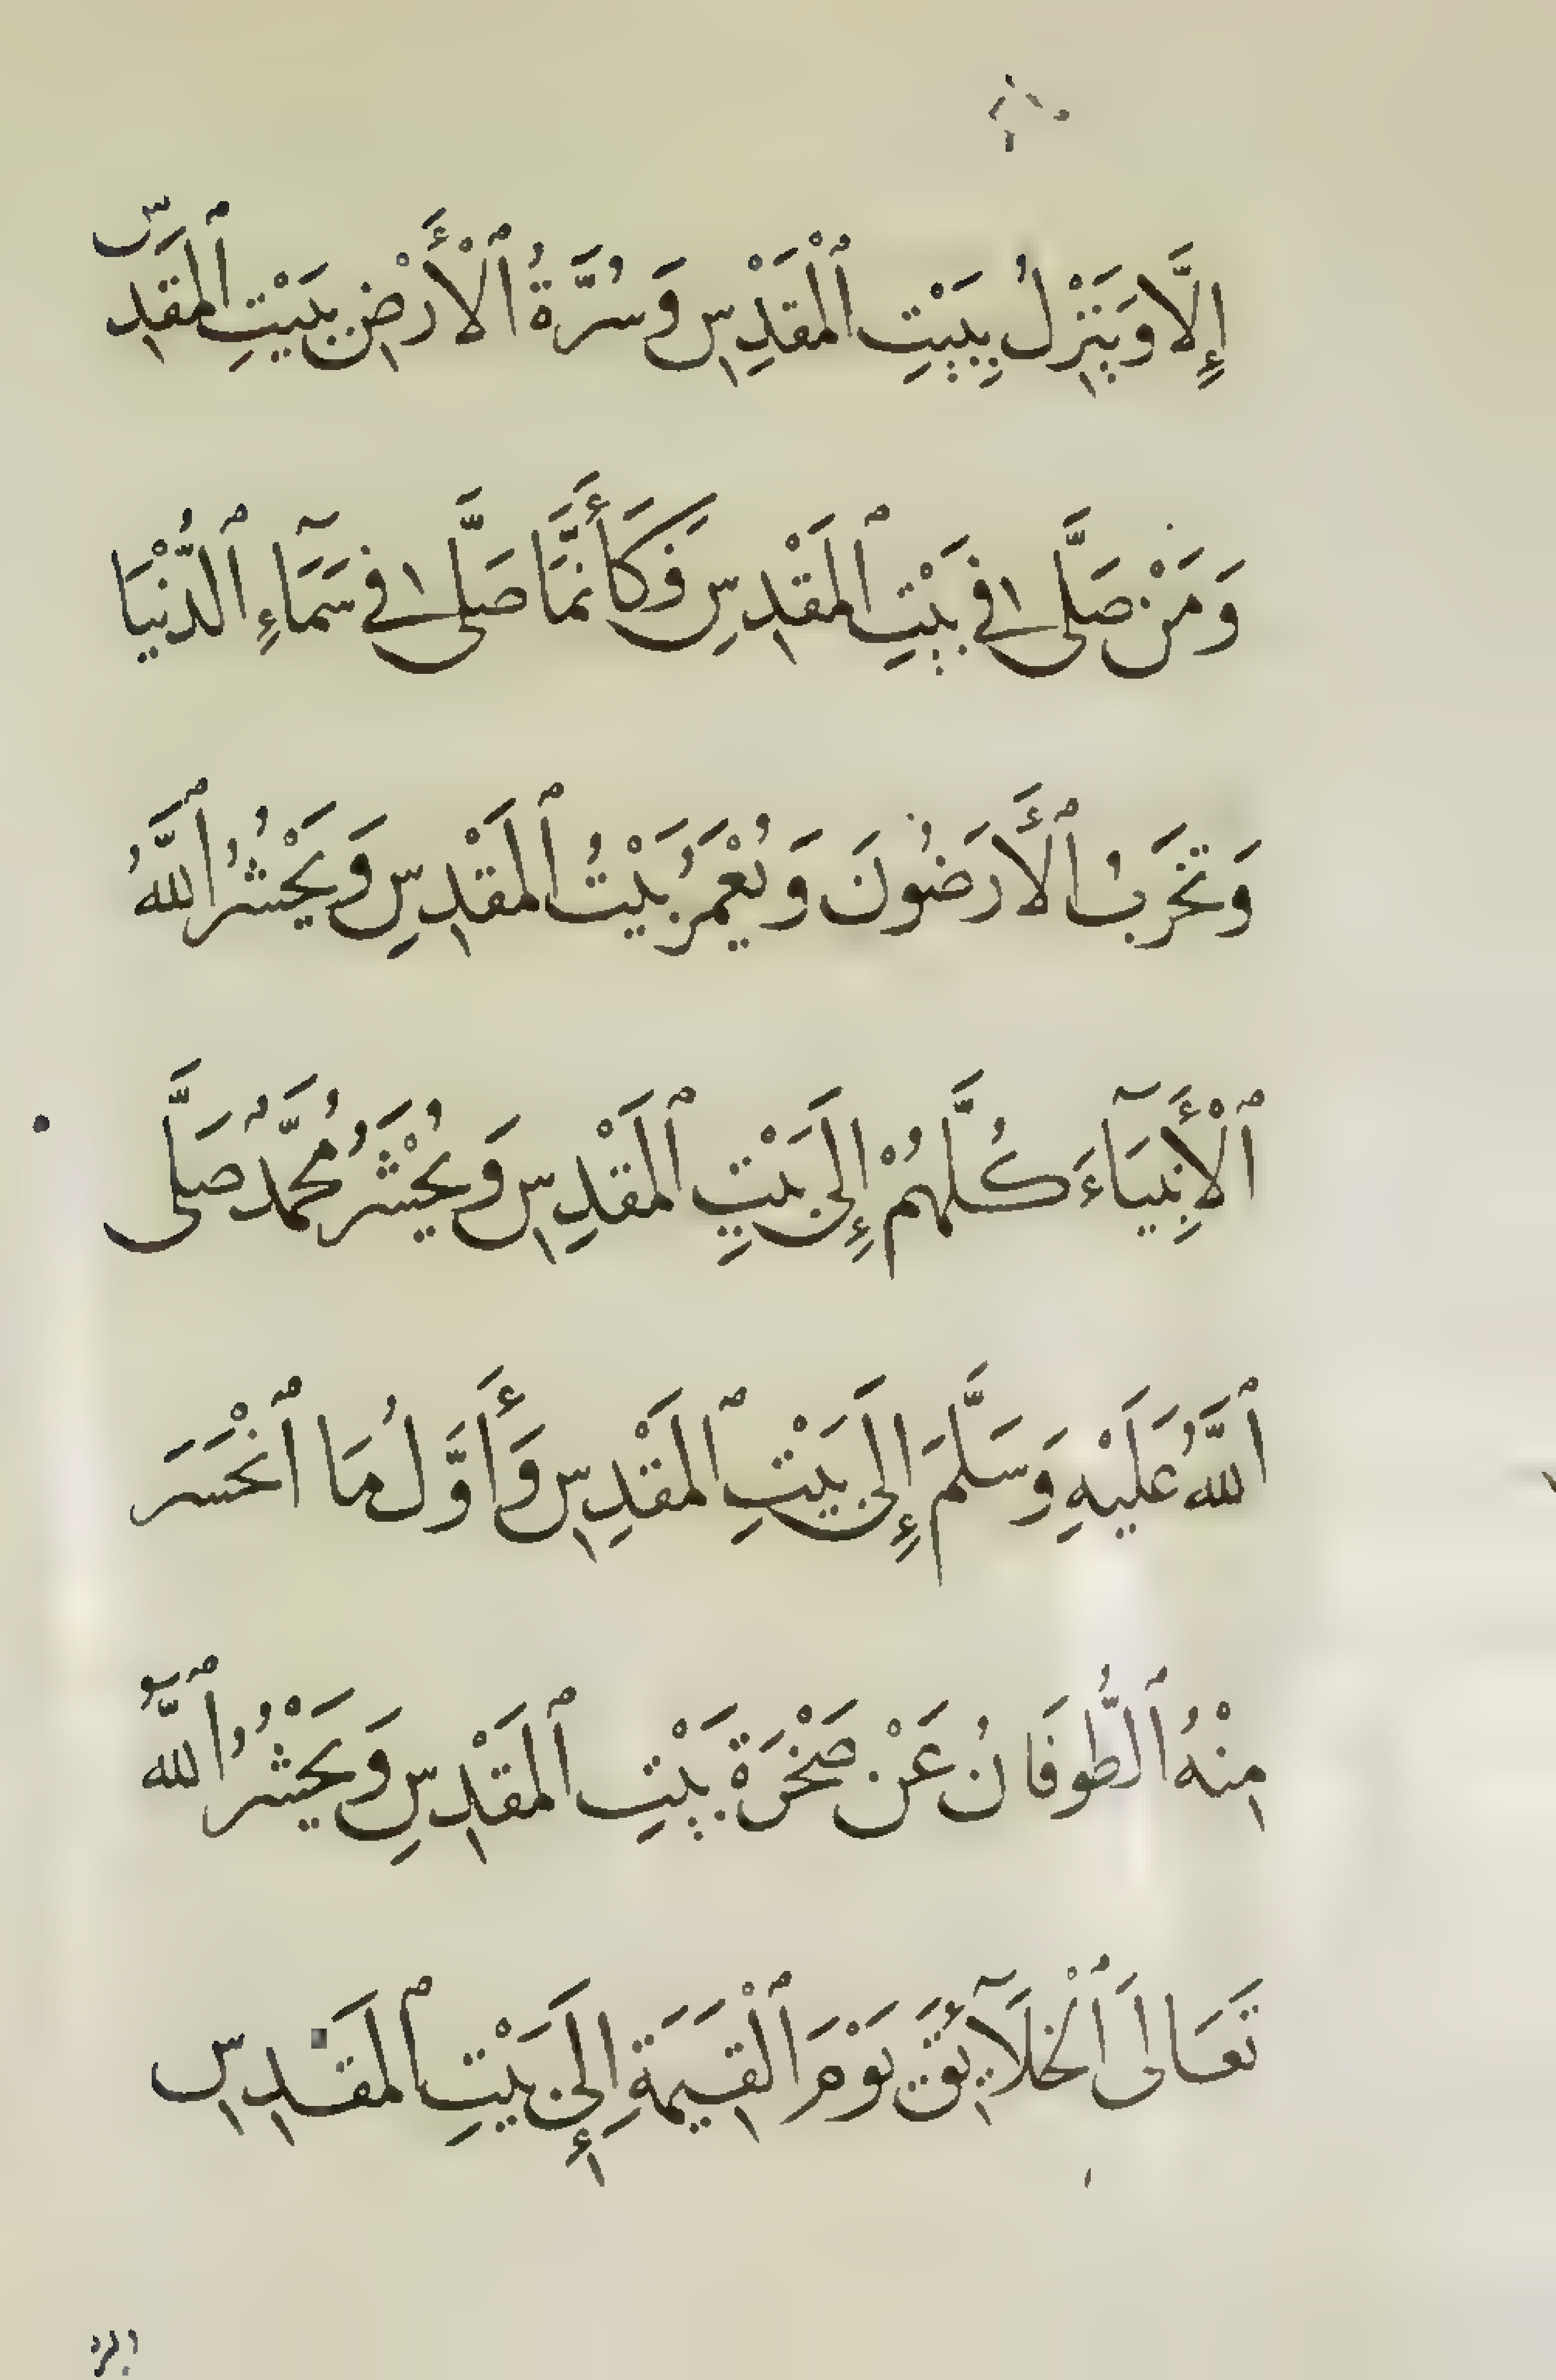 إِلَّا وَيَنْزِلُ بِبَيْتِ ٱلْمَقْدِسِ وَسُرَّةُ ٱلْأَرْضِ بَيْتِ ٱلمَقدِسِّ
وَمَنْ صَلَّى فِي بَيْتِ ٱلمَقْدِسِ فَكَأَنَّمَا صَلَّى فِي سَمَآءِ ٱلدُّنْيَا
وَتَخْرَبُ ٱلأَرَضُونَ وَيُعْمَرُ بَيْتُ ٱلمَقْدِسِ وَيَحْشُرُ ٱللَّهُ
ٱلْأَنْبِيَآءَ كُلَّهُمْ إِلَى بَيْتِ ٱلمَقْدِسِ وَيُحْشَرُ مُحَمَّدٌ صَلَّى
ٱللَّهُ عَلَيْهِ وَسَلَّمَ إِلَى بَيْتِ ٱلمَقْدِسِ وَأَوَّلُ مَا ٱنْحَسَرَ
مِنْهُ ٱلطُّوفَانُ عَنْ صَخْرَةِ بَيْتِ ٱلمَقْدِسِ وَيَحْشُرُ ٱللَّهُ
تَعَالَى ٱلْخَلَآئِقَ يَوْمَ ٱلْقِيَمَةِ إِلَى بَيْتِ ٱلمَقْدِسِ